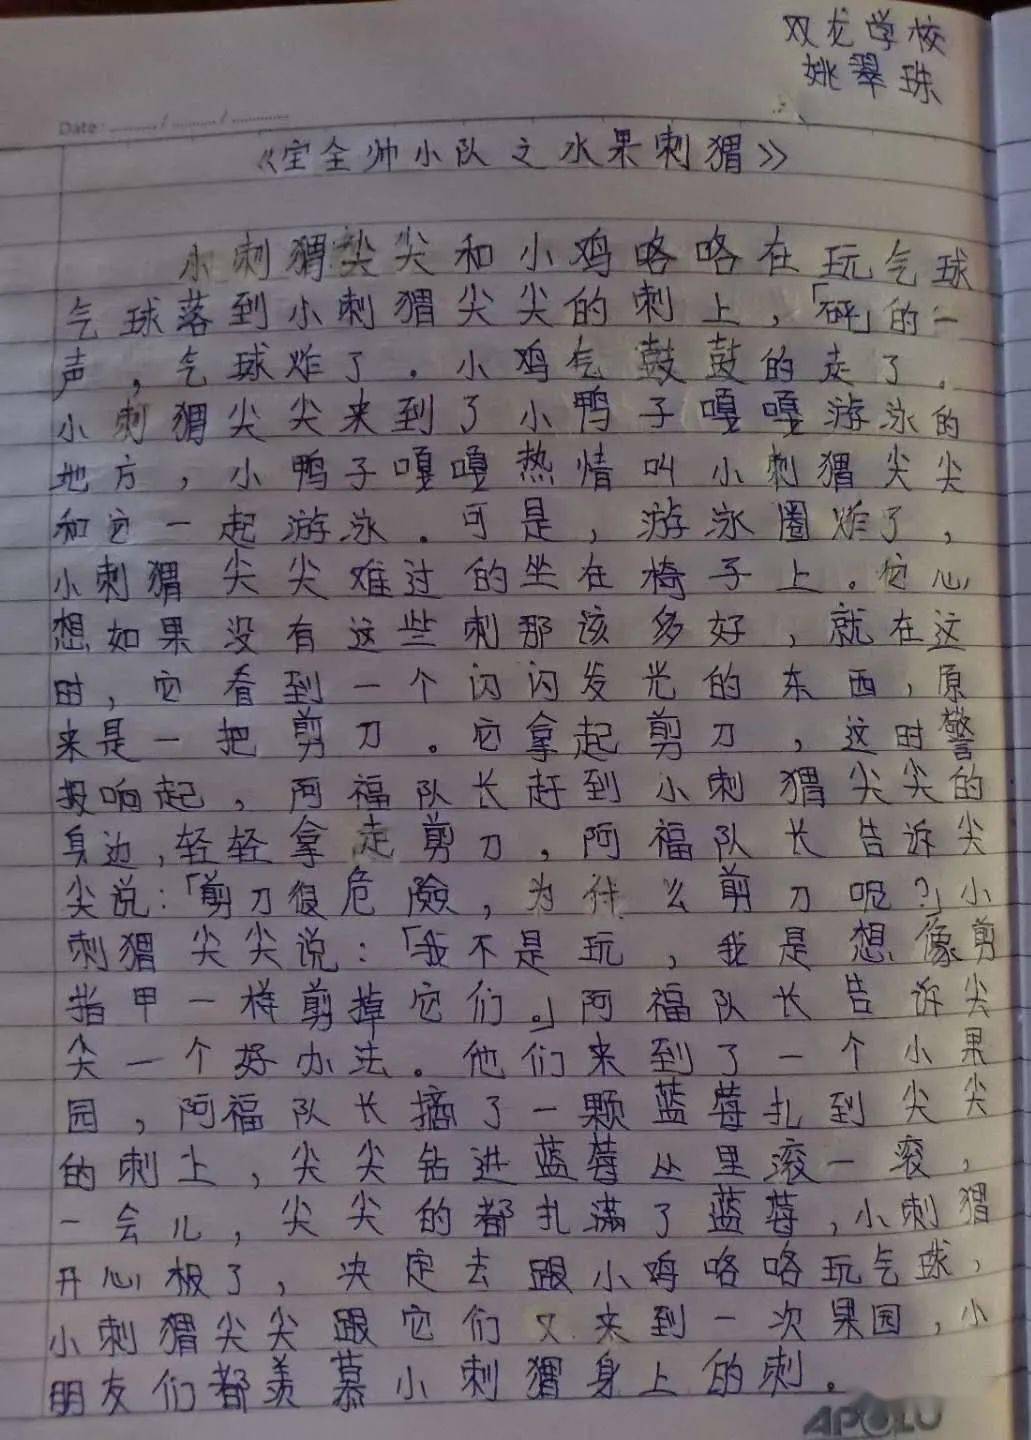 双龙学校
姚翠珠
Date: ......../......../........
《宝全帅小队之水果刺猬》
小刺猬尖尖和小鸡咯咯在玩气球
气球落到小刺猬尖尖的刺上，「砰」的一
声，气球炸了。小鸡气鼓鼓的走了。
小刺猬尖尖来到了小鸭子嘎嘎游泳的
地方，小鸭子嘎嘎热情叫小刺猬尖尖
和它一起游泳。可是，游泳圈炸了，
小刺猬尖尖难过的坐在椅子上。它心
想如果没有这些刺那该多好，就在这
时，它看到一个闪闪发光的东西，原
来是一把剪刀。它拿起剪刀，这时警
报响起，阿福队长赶到小刺猬尖尖的
身边，轻轻拿走剪刀，阿福队长告诉尖
尖说：「剪刀很危險，为什么剪刀呢？」小
刺猬尖尖说：「我不是玩，我是想像剪
指甲一样剪掉它们。」阿福队长告诉尖
尖一个好办法。他们来到了一个小果
园，阿福队长摘了一颗蓝莓扎到尖尖
的刺上，尖尖钻进蓝莓丛里滚一滚，
一会儿，尖尖的都扎满了蓝莓，小刺猬
开心极了，决定去跟小鸡咯咯玩气球，
小刺猬尖尖跟它们又来到一次果园，小
朋友们都羡慕小刺猬身上的刺。
APOLO